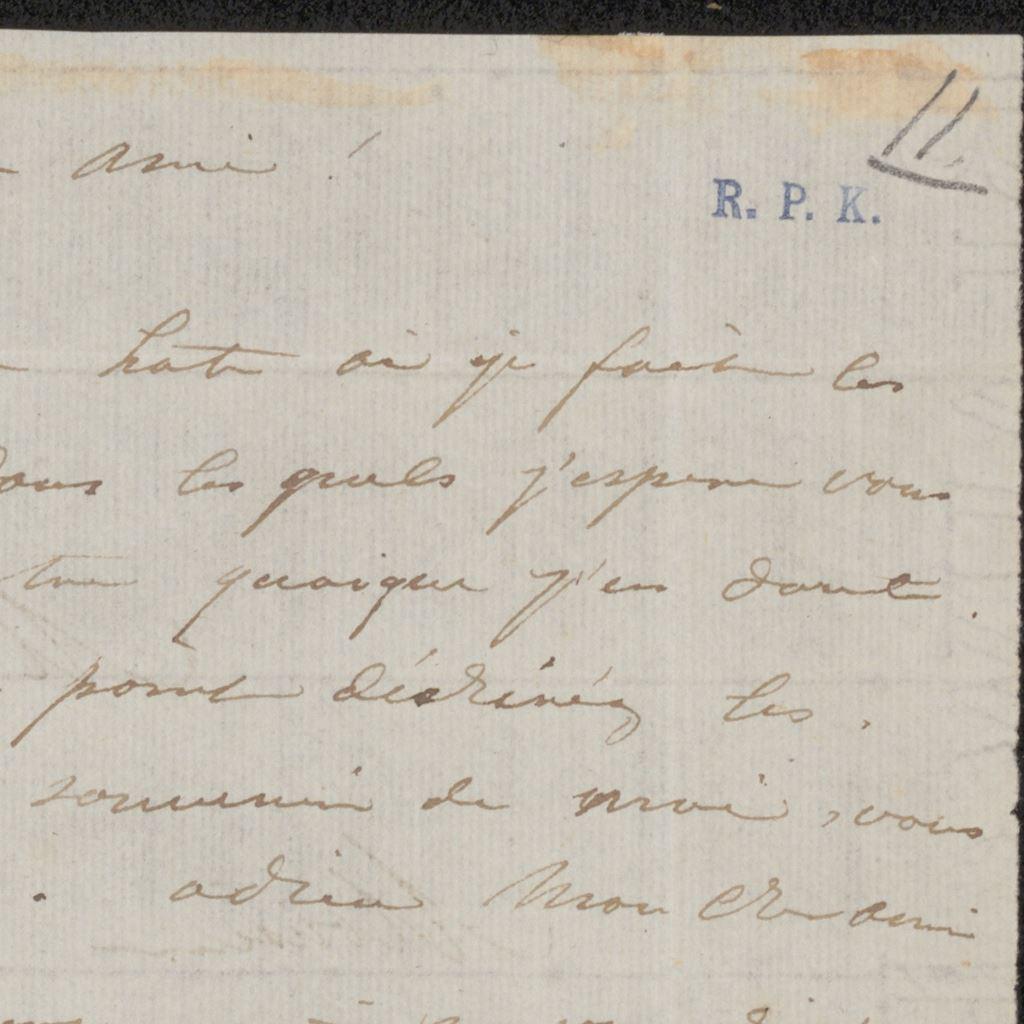 11
ami !
R. P. K.
hate où je fait les
dans les quels j'espere vous
quoique j'en doute.
point déchiréz les,
souvenir de moi, vous
. adieu Mon cher ami